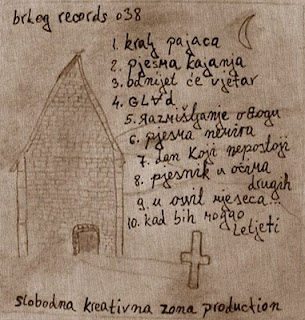 brlog records 038
1. kralj pajaca
2. pjesma kajanja
3. odnijet će vjetar
4. GLVD
5. razmišljanje o Bogu
6. pjesma nemira
7. dan koji nepostoji
8. pjesnik u očima
drugih
9. u osvil mjeseca...
10. kad bih mogao
letjeti
slobodna kreativna zona production